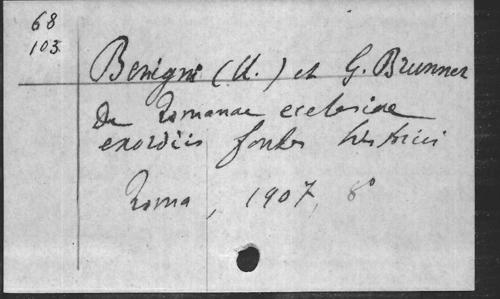 68
103
Benigni (U.) et G. Brunner
De Romanae ecclesiae
exordiis fontes historici
Roma, 1907, 8°